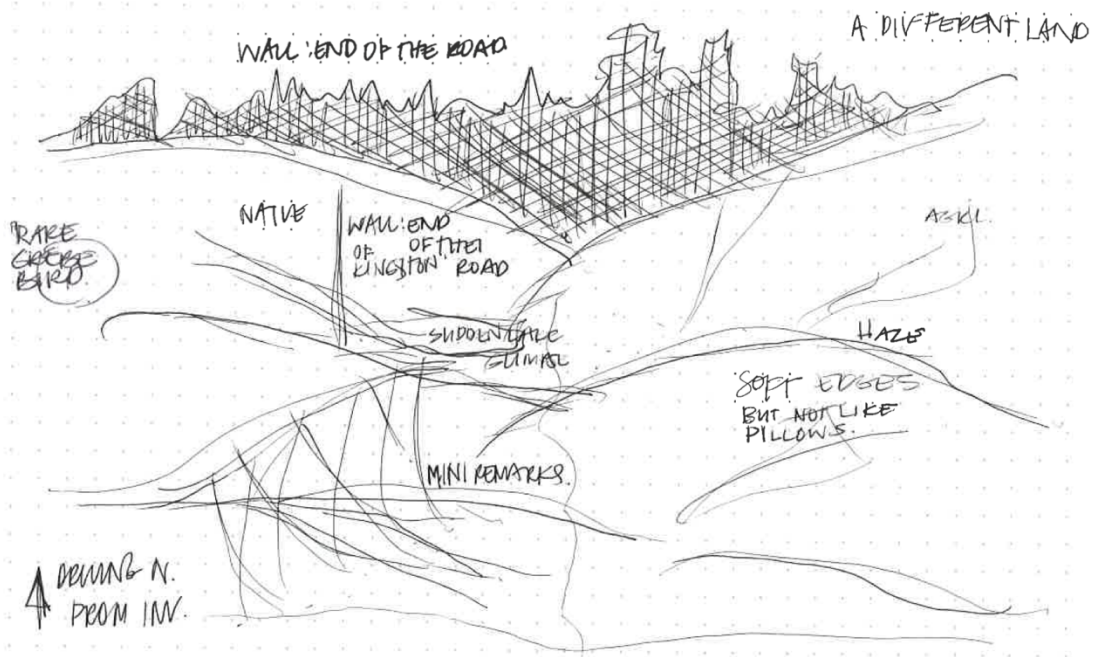 A DIFFERENT LAND
WALL: END OF THE ROAD
NATIVE
WALL: END
OF THE
OF
KINGSTON ROAD
RARE
GREBE
BIRD.
HAZE
SOFT EDGES
BUT NOT LIKE
PILLOWS.
MINI REMARKS.
DRIVING N.
FROM INV.